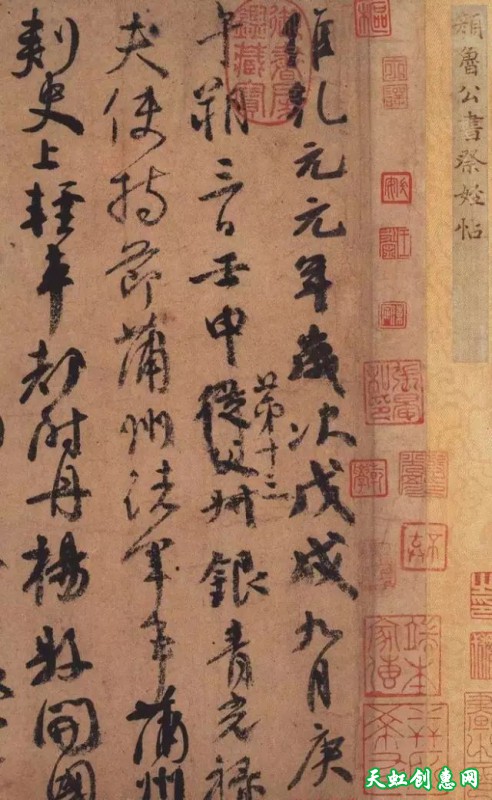 顏魯公書祭姪帖
維乾元元年歲次戊戌九月庚
午朔三日壬申從父叔銀青光祿
第十三
夫使持節蒲州諸軍事蒲州
刺史上輕車都尉丹楊縣開國
御書房鑑藏寶
張晏私印
天虹创意网